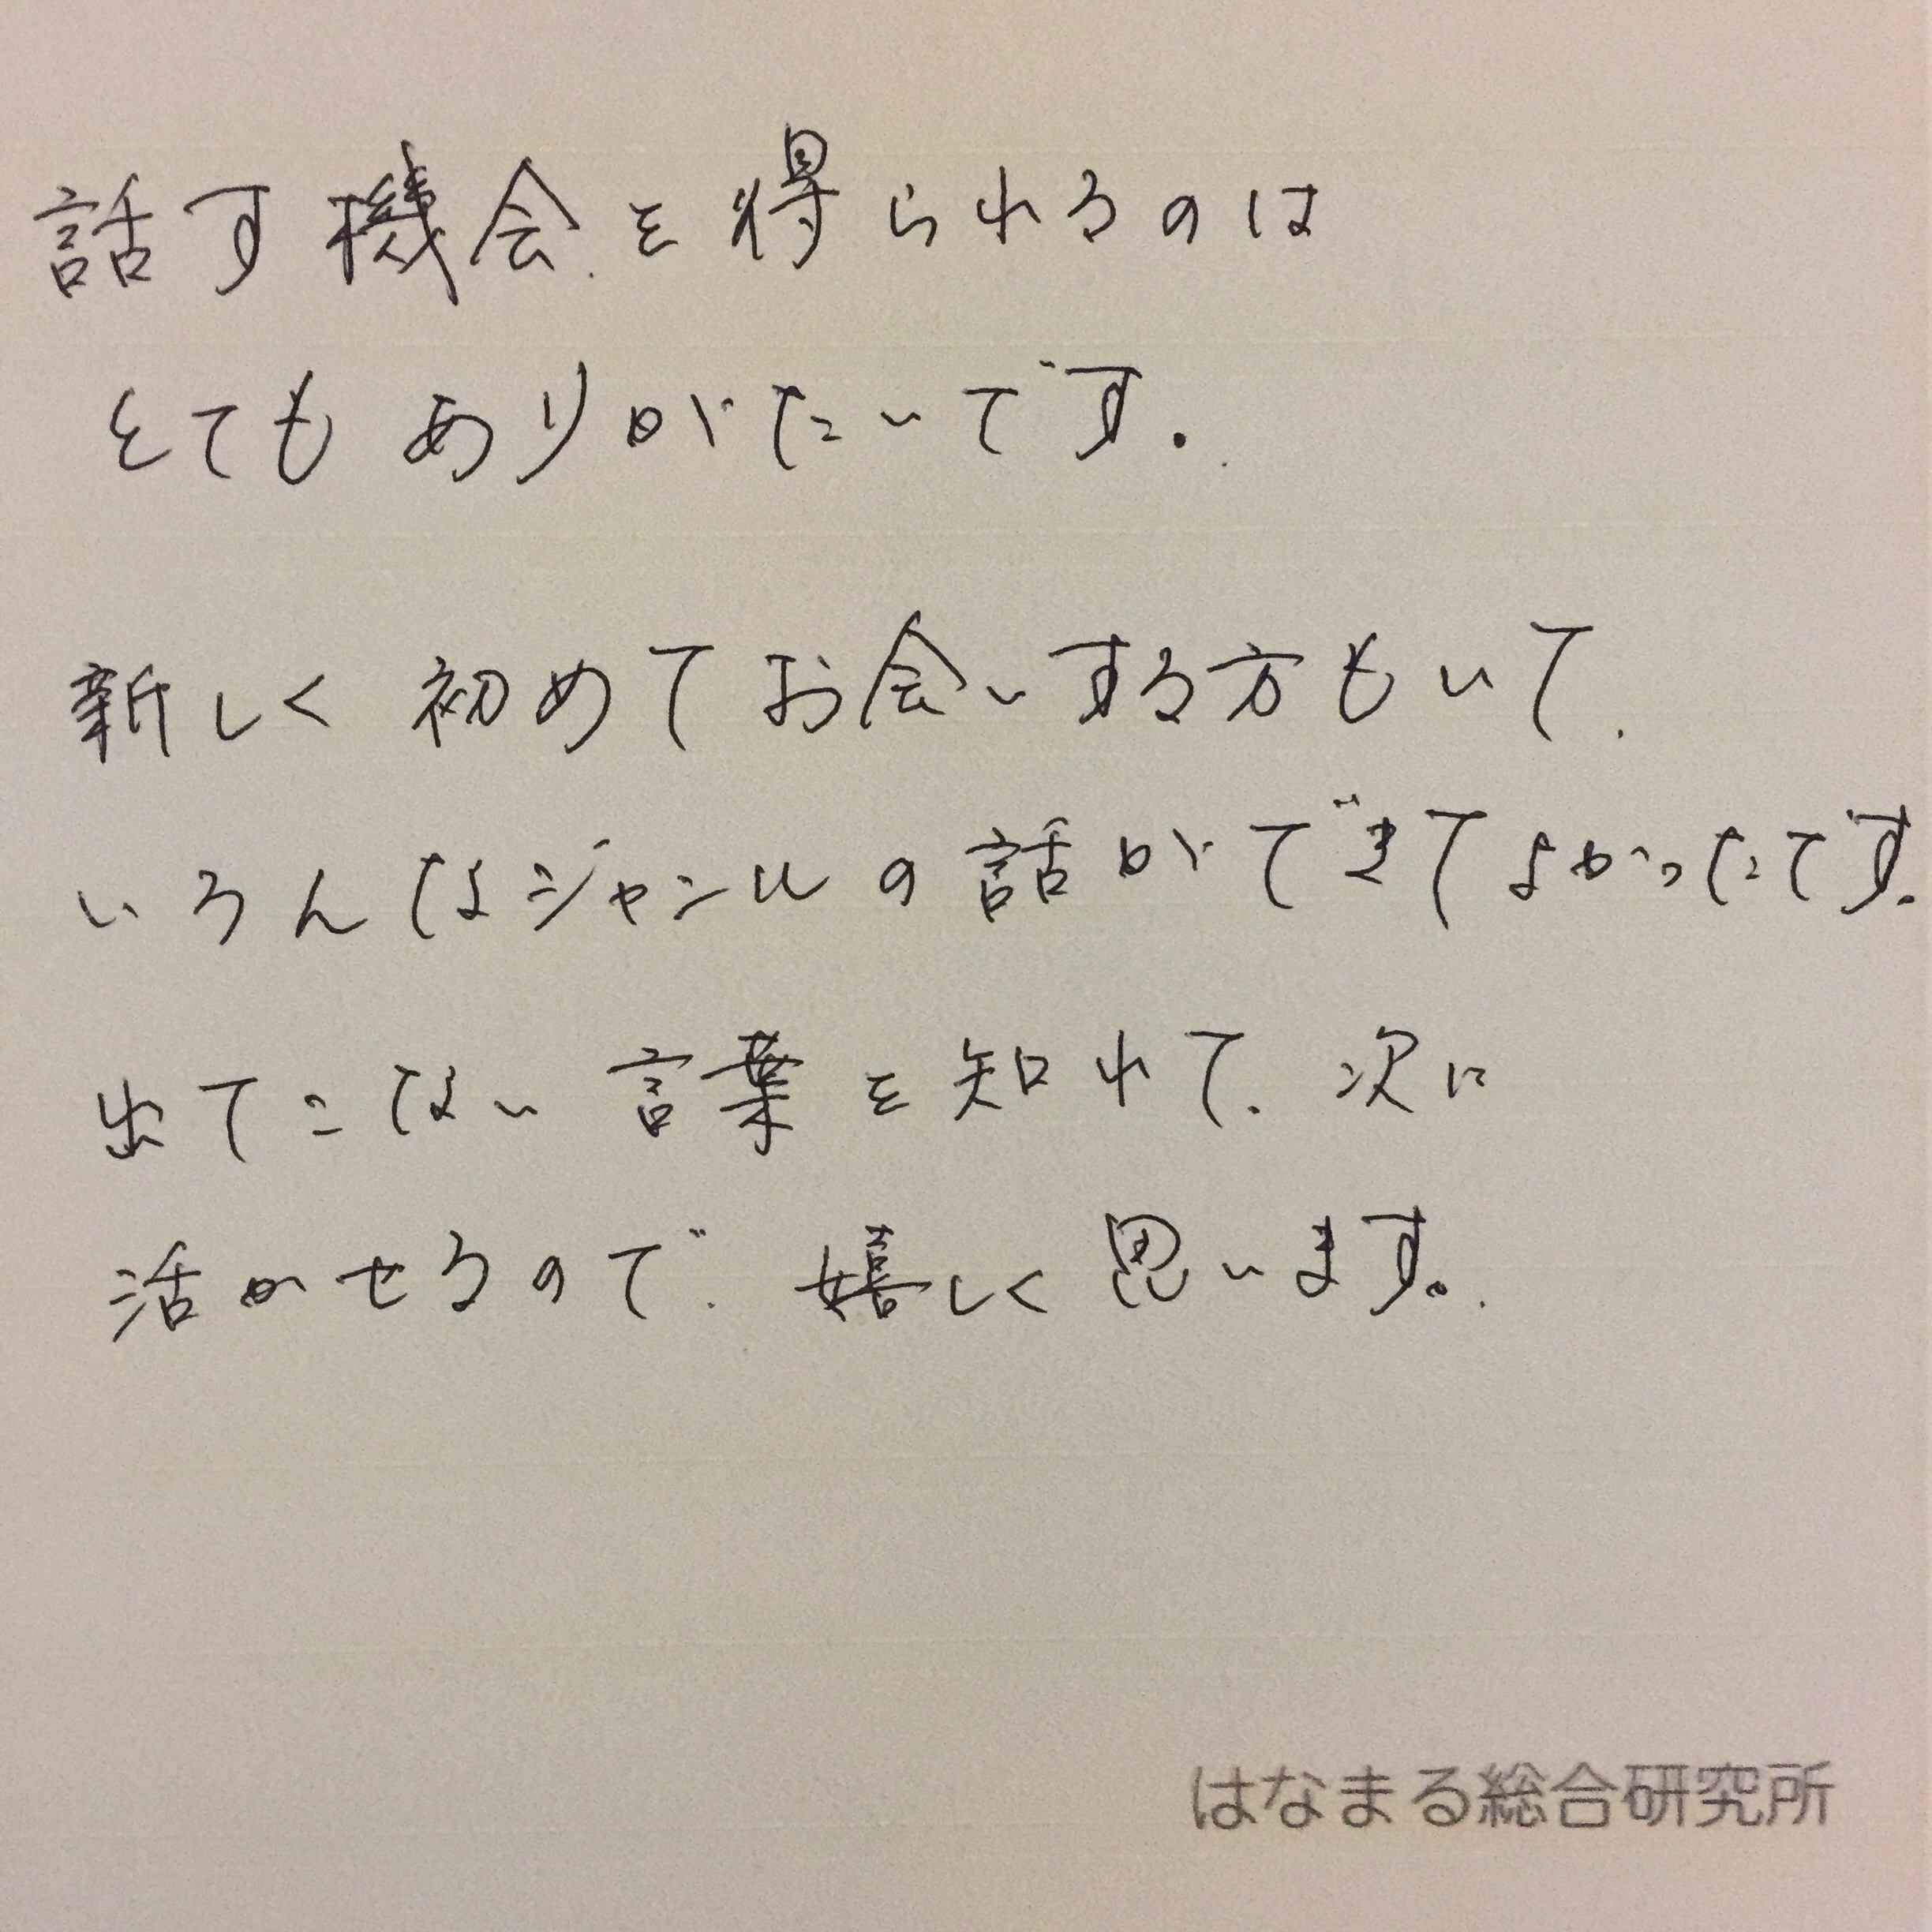 話す機会を得られるのは
とてもありがたいです。
新しく初めてお会いする方もいて、
いろんなジャンルの話ができてよかったです。
出てこない言葉を知れて、次に
活かせるので、嬉しく思います。
はなまる総合研究所